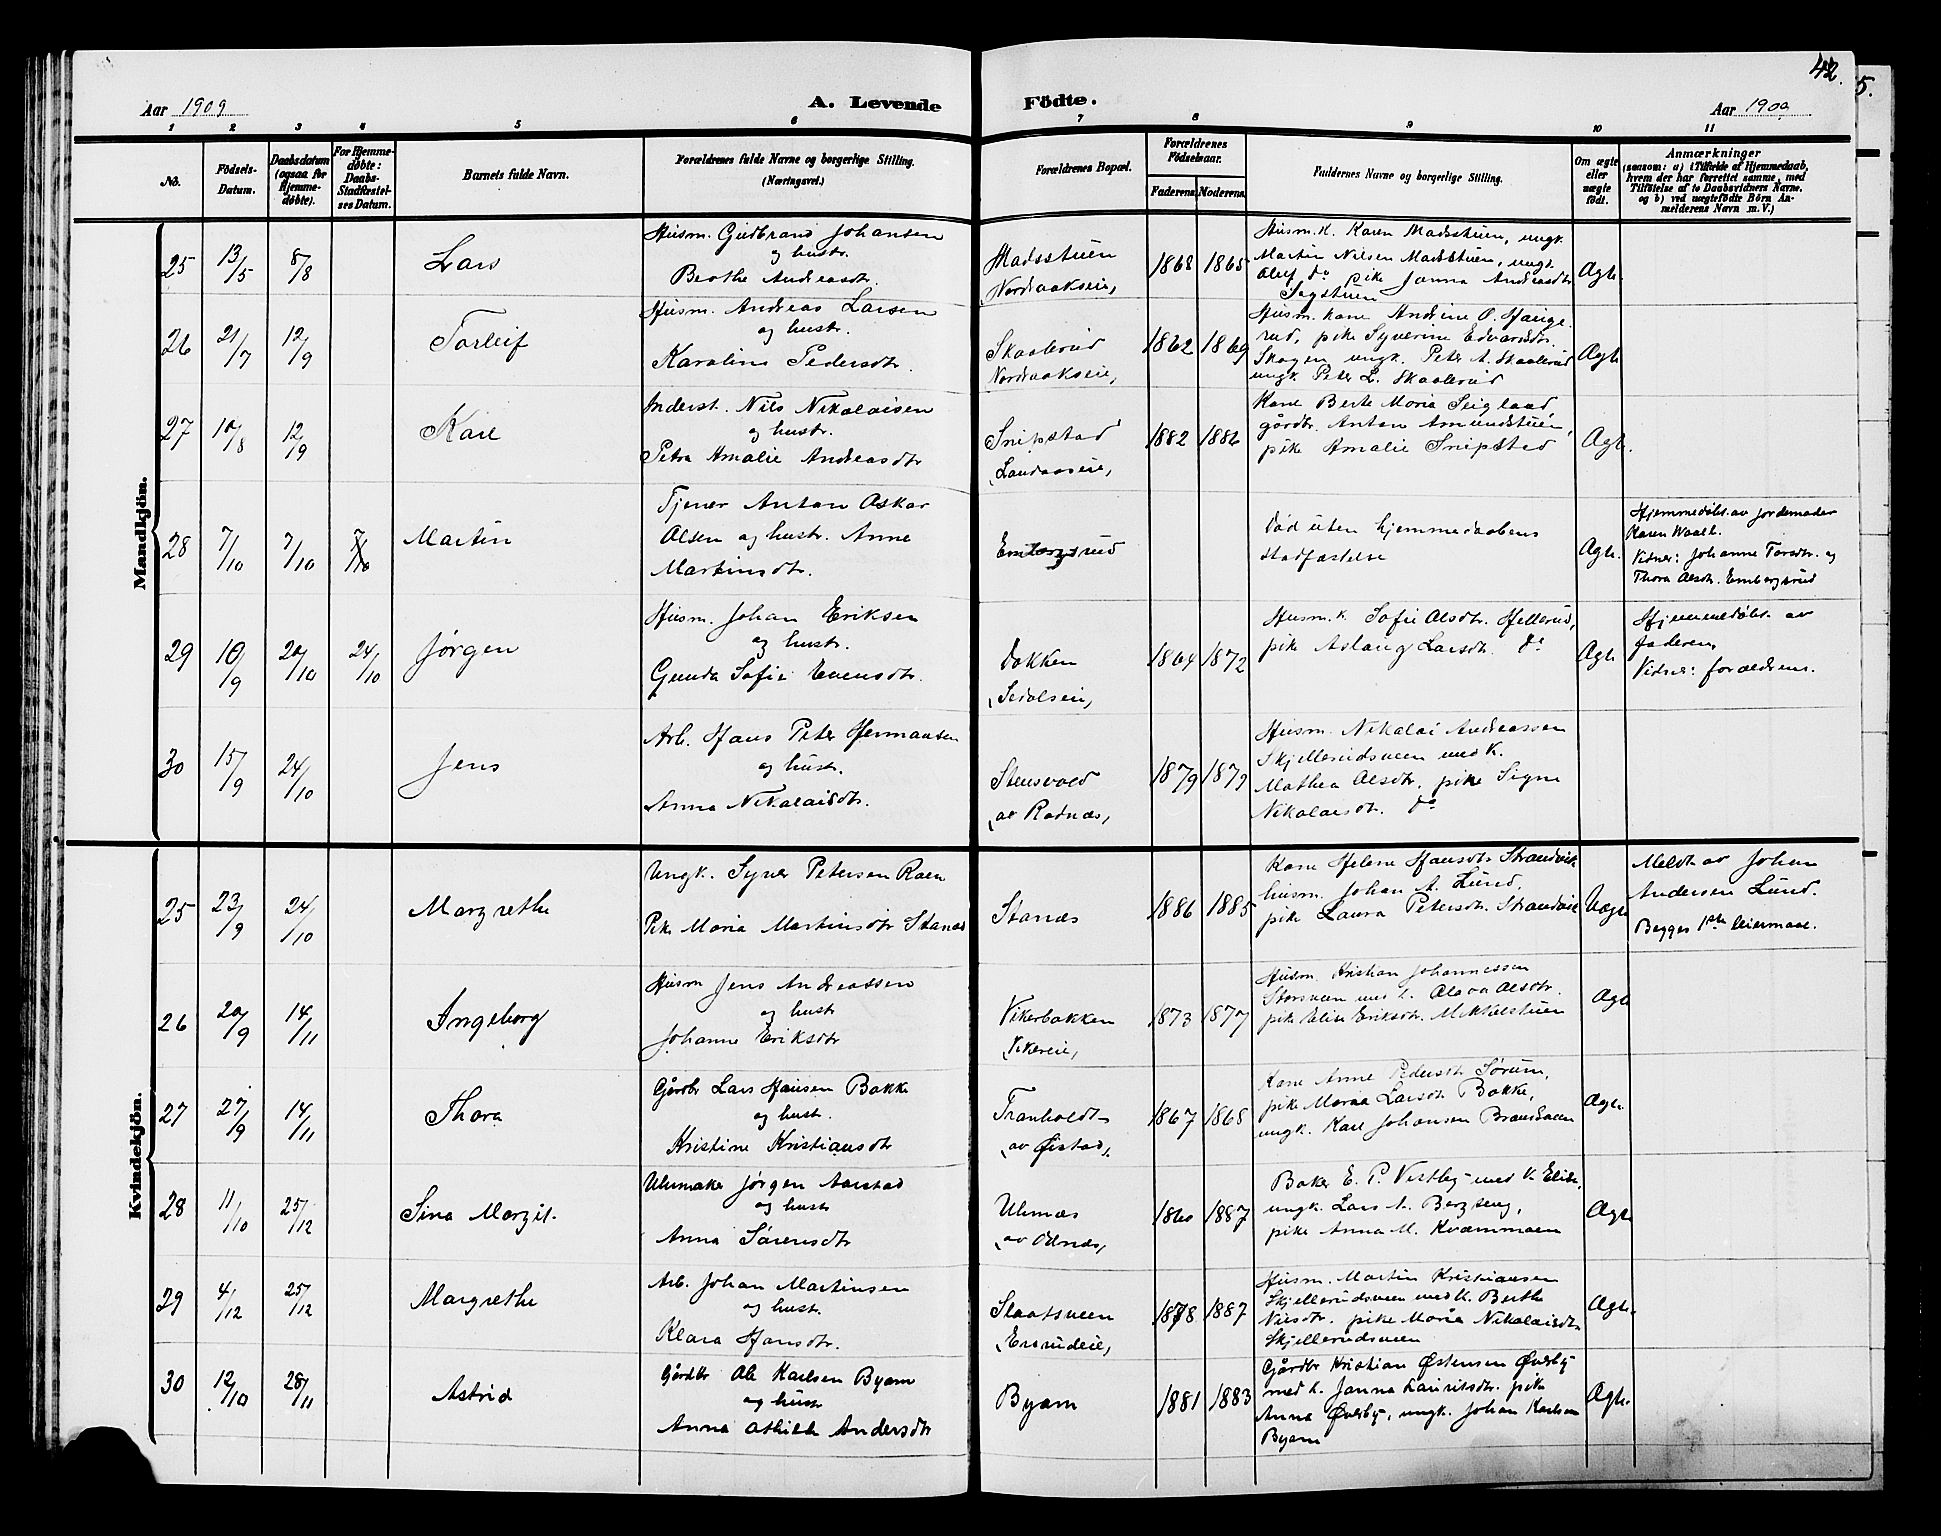 42.
5.
Aar 1909
A. Levende
Födte.
Aar 1909
1 2 3 4 5 6 7 8 9 10 11
No.
Födsels-
Datum.
Daabsdatum
(ogsaa for
Hjemme-
døbte).
For Hjemme-
døbte:
Daabs-
Stadfæstel-
ses Datum.
Barnets fulde Navn.
Forældrenes fulde Navne og borgerlige Stilling.
(Næringsvei.)
Forældrenes Bopæl.
Forældrenes
Födselsaar.
Faderens.
Moderens.
Faddernes Navne og borgerlige Stilling.
Om ægte
eller
uægte
födt.
Anmærkninger
(saasom: a) i Tilfælde af Hjemmedaab,
hvem der har forrettet samme, med
Tilföielse af to Daabsvidners Navne.
og b) ved uægtefödte Börn An-
melderens Navn m. V.)
Mandkjön.
25
13/5
8/8
Lars
Husm. Gudbrand Johansen
og hustr.
Berthe Andreasdtr.
Madsstuen
(Nordraakseie)
1868
1865
Husm. k. Karen Madsstuen, ungk.
Martin Nilsen Madsstuen, ungk.
Oluf do pike Janna Andreasdtr
Sagstuen
Ægte.
26
21/7
12/9
Torleif
Husm. Andreas Larsen
og hustr.
Karoline Pedersdtr.
Skaalerud
Nordraakseie,
1862
1869
Husm. kone Andrine O. Hauge-
rud, pike Syverine Edvardsdtr.
Skogen, ungk. Peter A. Skaalerud
ungk. Peter L. Skaalerud
Ægte
27
10/8
12/9
Karl
Inderst. Nils Nikolaisen
og hustr.
Petra Amalie Andreasdtr
Snipstad
(Landaaseie)
1882
1886
Kone Berte Maria Seigland,
gårdbr. Anton Amundstuen,
pike Amalie Snipstad
Ægte.
28
7/10
7/10
7/10
Martin
Tjener Anton Oskar
Olsen og hustr. Anne
Martinsdtr.
Embergsrud
Død uten hjemmedaabens
stadfæstelse
Ægte.
Hjemmedøbt av jordemoder
Karen Waalt.
Vidner: Johanne Torsdtr. og
Thora Olsdtr. Embergsrud
29
10/9
20/10
24/10
Jørgen
Husm. Johan Eriksen
og hustr.
Gunda Sofie Evensdtr.
Dokken
(Sedalseie)
1864
1872
Husm. k. Sofie Olsdtr. Hellerud,
pike Aslaug Larsdtr. do
Ægte
Hjemmedøbt av
faderen,
Vidner: forældrene.
30
15/9
24/10
Jens
Arb. Hans Peter Hermansen
og hustr.
Anna Nikolaisdtr.
Stensvold
(av Radnæs)
1879
1879
Husm. Nikolai Andreassen
Skjellerudsveen med k.
Mathea Olsdtr. pike Signe
Nikolaisdtr. do
Kvindekjön.
25
23/9
24/10
Margrethe
Ungk. Syver Petersen Roen
Pike Maria Martinsdtr Stanæs
Stanæs
1886
1885
Kone Helene Hansdtr Strandvik
husm. Johan A. Lund,
pike Laura Petersdtr. Strandvik
Uægte
Meldt av Johan
Andersen Lund.
Begges 1ste leiermaal.
26
20/9
14/11
Ingeborg
Husm Jens Andreassen
og hustr
Johanne Eriksdtr
Vikerbakken
(Vikereie)
1873
1877
Husm. Kristian Johannessen
Storsveen med k. Olava Olsdtr.
pike Elise Eriksdtr. Mikkelstuen
Ægte
27
27/9
14/11
Thora
Gårdbr Lars Hansen Bakke
og hustr.
Kristine Kristiansdtr
Tranholdt
(av Øistad)
1867
1868
Kone Anne Pedersdtr Sørum,
pike Maria Larsdtr Bakke,
ungk. Karl Johansen Brænsveen
Ægte.
28
11/10
25/12
Sina Margit.
Uhrmaker Jørgen Aarstad
og hustr
Anna Sørensdtr
Uhrnæs
(av Odnæs)
1860
1887
Baker E. P. Vestby med k. Elise,
ungk. Lars A. Bergseng,
pike Anna M. Kvæmmoen
Ægte
29
4/12
25/12
Margrethe
Arb. Johan Martinsen
og hustr.
Klara Hansdtr.
Slaatsveen
(Ensrudeie)
1878
1887
Husm. Martin Kristiansen
Skjellerudsveen med k. Berthe
Nilsdtr. pike Maria Nikolaisdtr
Skjellerudsveen
Ægte.
30
12/10
28/11
Astrid
Gårdbr Ole Karlsen Byom
og hustr
Anna Othilde Andersdtr
Byom
1881
1883
Gårdbr Kristian Østensen Øverby
med k. Janna Lauritsdtr. pike
Anna Øverby, ungk. Johan Karlsen
Byom
Ægte.